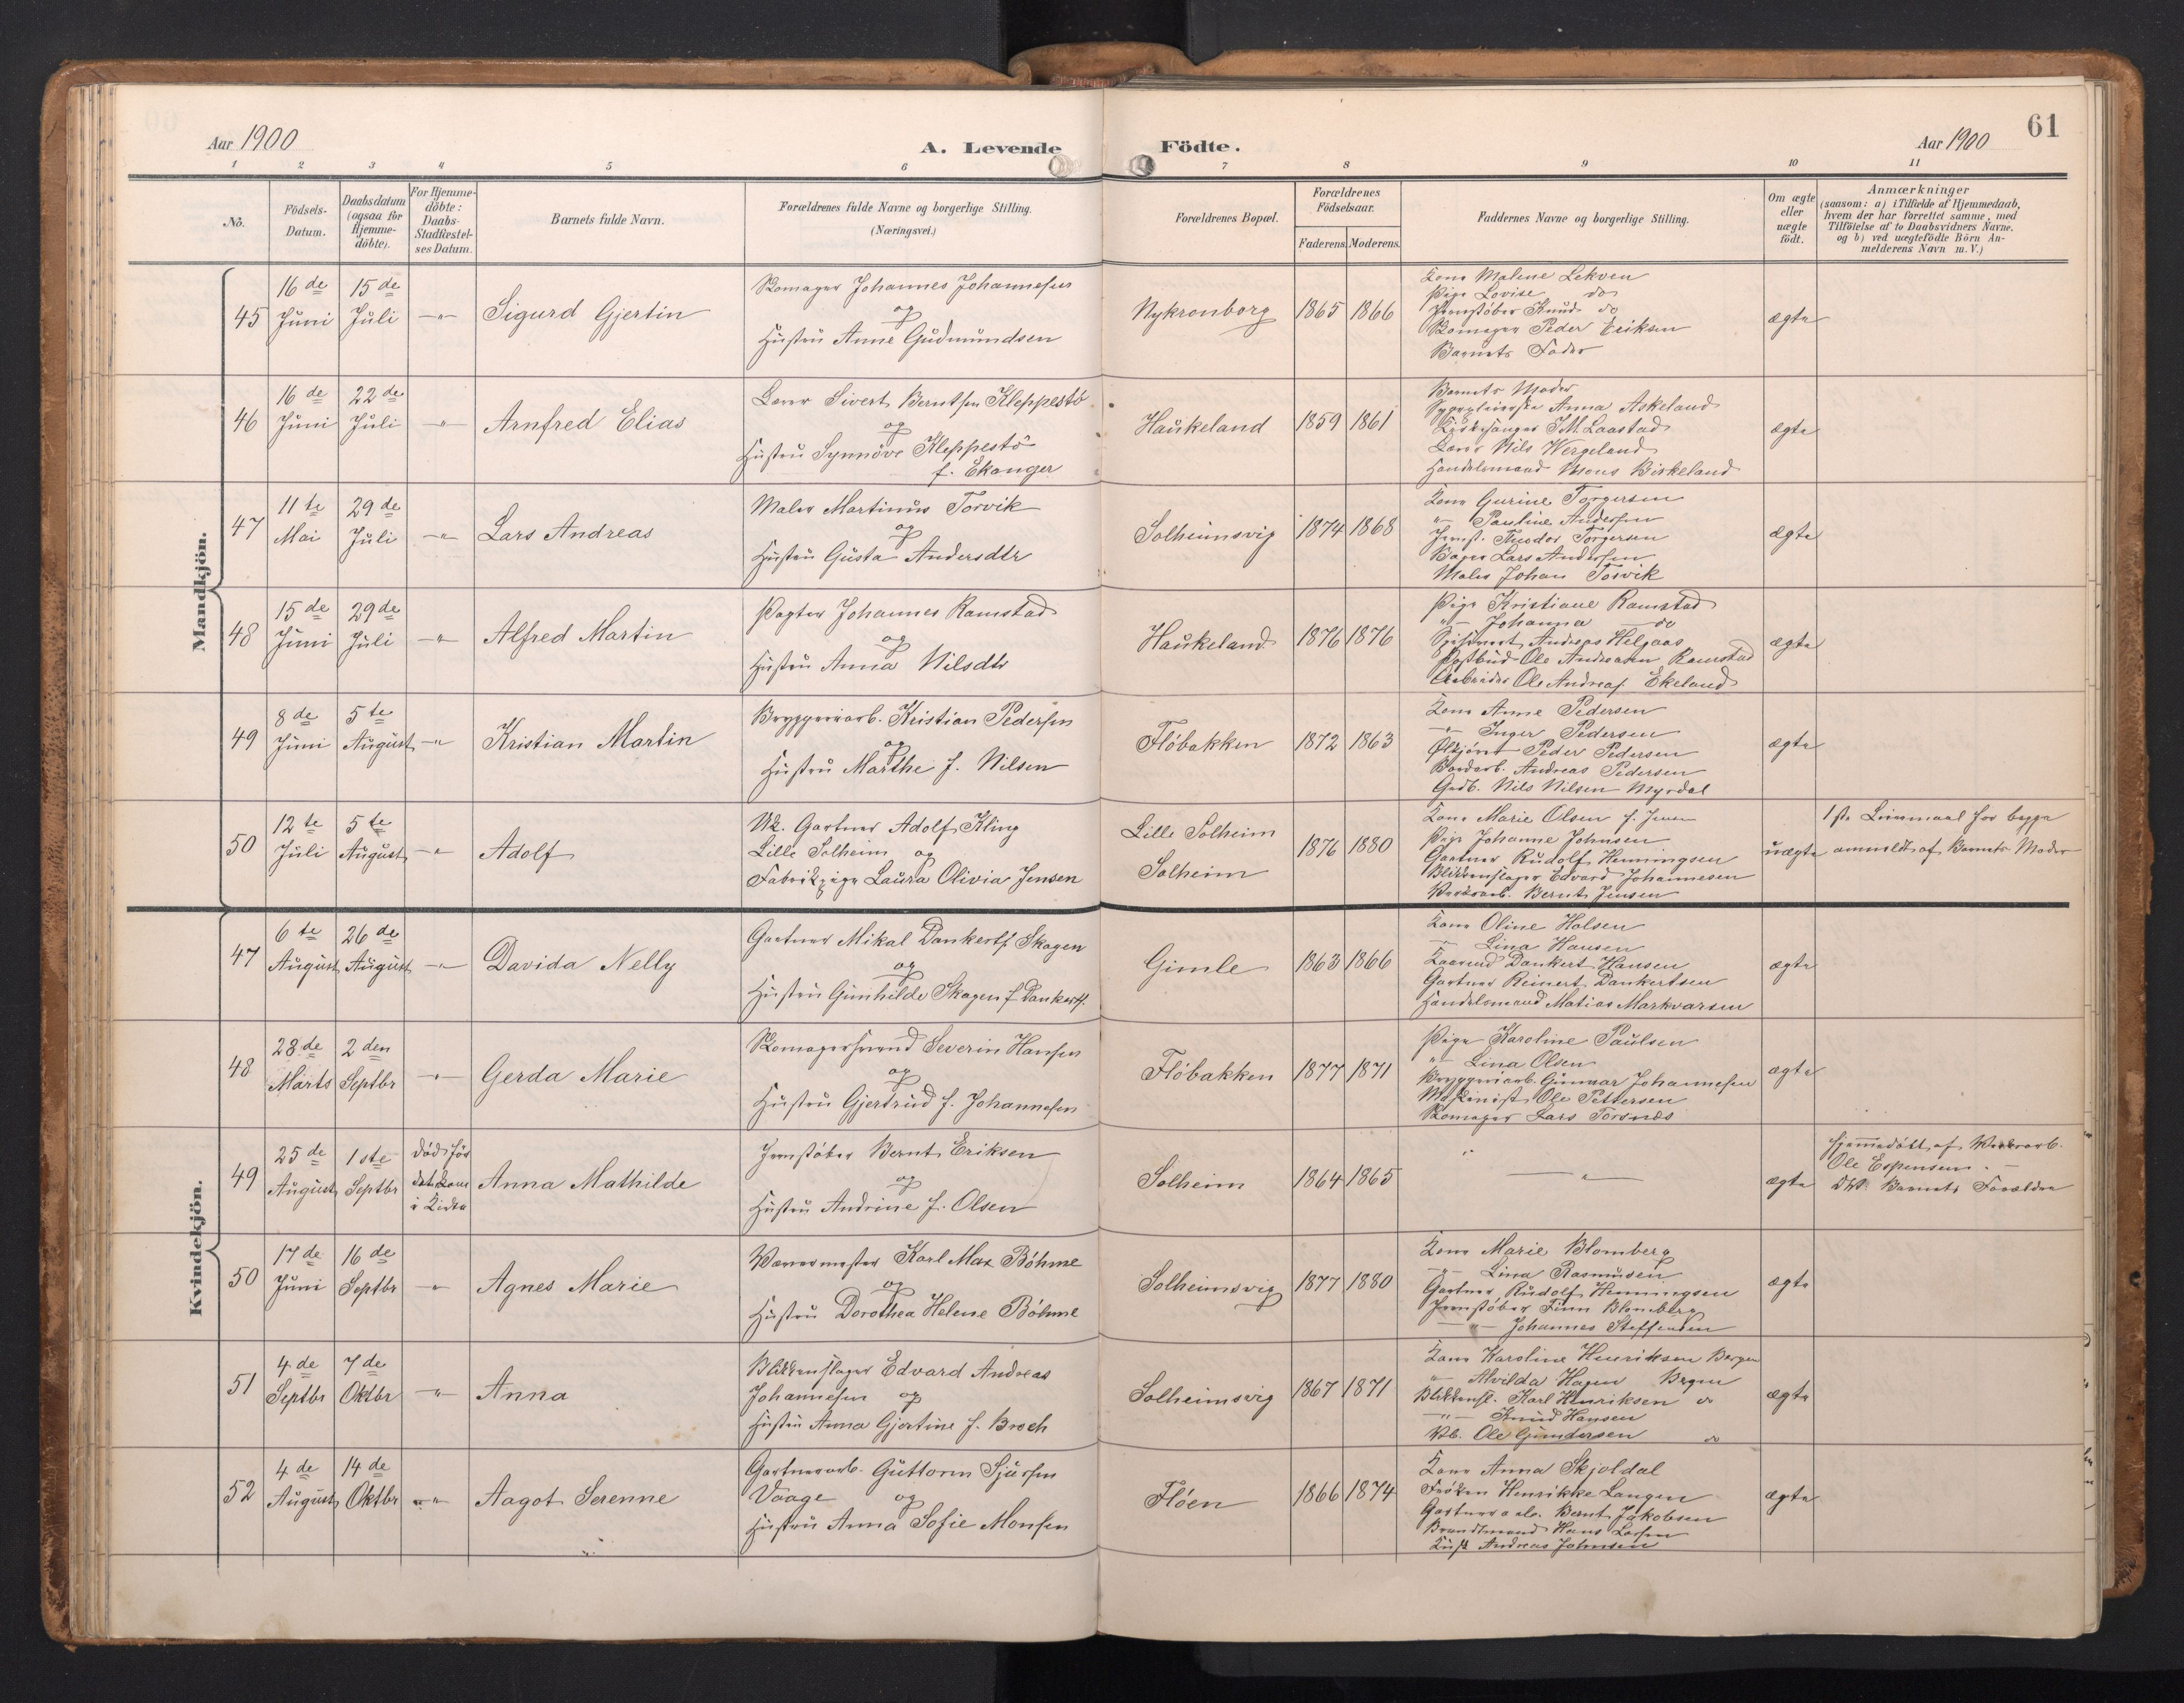 Aar 1900
A. Levende
Födte.
Aar 1900
61
1 2 3 4 5 6 7 8 9 10 11
No.
Födsels-
Datum.
Daabsdatum
(ogsaa for
Hjemme-
döbte).
For Hjemme-
döbte:
Daabs-
Stadfæstel-
ses Datum.
Barnets fulde Navn.
Forældrenes fulde Navne og borgerlige Stilling.
(Næringsvei.)
Forældrenes Bopæl.
Forældrenes
Födselsaar.
Faderens. Moderens.
Faddernes Navne og borgerlige Stilling.
Om ægte
eller
uægte
födt.
Anmærkninger
(saasom: a) i Tilfælde af Hjemmedaab,
hvem der har forrettet samme, med
Tilföielse af to Daabsvidners Navne.
og b) ved uægtefödte Börn An-
melderens Navn m. V.)
Mandkjön.
45
16 de
Juni
15 de
Juli
-"-
Sigurd Gjertin
Skomager Johannes Johannesen
og
Hustru Anne Gudmundsen
Nykronborg
1865
1866
Kone Malene Lekven
Pige Lovise do
Jernstöber Knud do
Skomager Peder Eriksen
Barnets Fader
ægte
46
16 de
Juni
22 de
Juli
-"-
Arnfred Elias
Lærer Sivert Berntsen Kleppestö
og
Hustru Synnöve Kleppestö
f. Ekanger
Haukeland
1859
1861
Barnets Moder
Anna Askeland
Kirkesanger T.M. Laastad
Lærer Nils Wergeland
Handelsmand Mons Birkeland
ægte
47
11 te
Mai
29 de
Juli
-"-
Lars Andreas
Maler Martinus Torvik
og
Hustru Gusta Andersdtr
Solheimsvig
1874
1868
Kone Gurine Torgersen
-"- Pauline Andersen
Jernst. Theodor Torgersen
Bager Lars Andersen
Maler Johan Torvik
ægte
48
15 de
Juni
29 de
Juli
-"-
Alfred Martin
Pagter Johannes Ramstad
og
Hustru Anna Nilsdtr
Haukeland
1876
1876
Pige Kristiane Ramstad
-"- Johanna do
Andreas Helgaas
Postbud Ole Andreasen Ramstad
Arbeider Ole Andreas Ekeland
ægte
49
8 de
Juni
5 te
August
-"-
Kristian Martin
Bryggeriarb. Kristian Pedersen
og
Hustru Marthe f. Nilsen
Flöbakken
1872
1863
Kone Anne Pedersen
-"- Inger Pedersen
Ölkjörer Peder Pedersen
Andreas Pedersen
Grdb. Nils Nilsen Myrdal
ægte
50
12 te
Juli
5 te
August
-"-
Adolf
Uk. Gartner Adolf Kling
Lille Solheim og
Fabrikpige Laura Olivia Jensen
Lille Solheim
Solheim
1876
1880
Kone Marie Olsen f. Jensen
Pige Johanne Johnsen
Gartner Rudolf Henningsen
Blikkenslager Edvard Johannesen
Værksarb. Bernt Jensen
uægte
1ste Leiermaal for begge
anmeldt af Barnets Moder
Kvindekjön.
47
6 te
August
26 de
August
-"-
Davida Nelly
Gartner Mikal Dankerts. Skagen
og
Hustru Gunhilde Skagen f. Dankerts.
Gimle
1863
1866
Kone Oline Holsen
-"- Lina Hansen
Dankert Hansen
Gartner Reinert Dankertsen
Handelsmand Matias Markvarsen
ægte
48
28 de
Marts
2 den
Septbr
-"-
Gerda Marie
Skomagersvend Severin Hansen
og
Hustru Gjertrud f. Johannesen
Flöbakken
1877
1871
Pige Karoline Paulsen
-"- Lina Olsen
Bryggeriarb. Gunnar Johannesen
Maskinist Ole Pettersen
Skomager Lars Torsnæs
ægte
49
25 de
August
1 ste
Septbr
död för
det kom
i Kirke
Anna Mathilde
Jernstöber Bernt Eriksen
og
Hustru Andrine f. Olsen
Solheim
1864
1865
-"-
ægte
Hjemmedöbt af Værksarb.
Ole Espensen.
D.V. Barnets Forældre
50
17 de
Juni
16 de
Septbr
-"-
Agnes Marie
Vævermester Karl Max Böhme
og
Hustru Dorothea Helene Böhme
Solheimsvig
1877
1880
Kone Marie Blomberg
-"- Lina Rasmusen
Gartner Rudolf Henningsen
Jernstöber Finn Blomberg
-"- Johannes Steffensen
ægte
51
4. de
Septbr
7 de
Oktbr
-"-
Anna
Blikkenslager Edvard Andreas
Johannesen og
Hustru Anna Gjertine f. Broch
Solheimsvig
1867
1871
Kone Karoline Henriksen Bergen
-"- Alvilda Hagen Bergen
Blikkensl. Karl Henriksen do
-"- Knud Hansen
Ole Gundersen do
ægte
52
4 de
August
14 de
Oktbr
-"-
Aagot Serenne
Gartnerarb. Guttorm Sjursen
Vaage og
Hustru Anna Sofie Monsen
Flöen
1866
1874
Kone Anna Skjoldal
Fröken Henrikke Langen
Gartnerarb. Bernt Jakobsen
Brandmand Hans Larsen
Kusk Andreas Johnsen
ægte